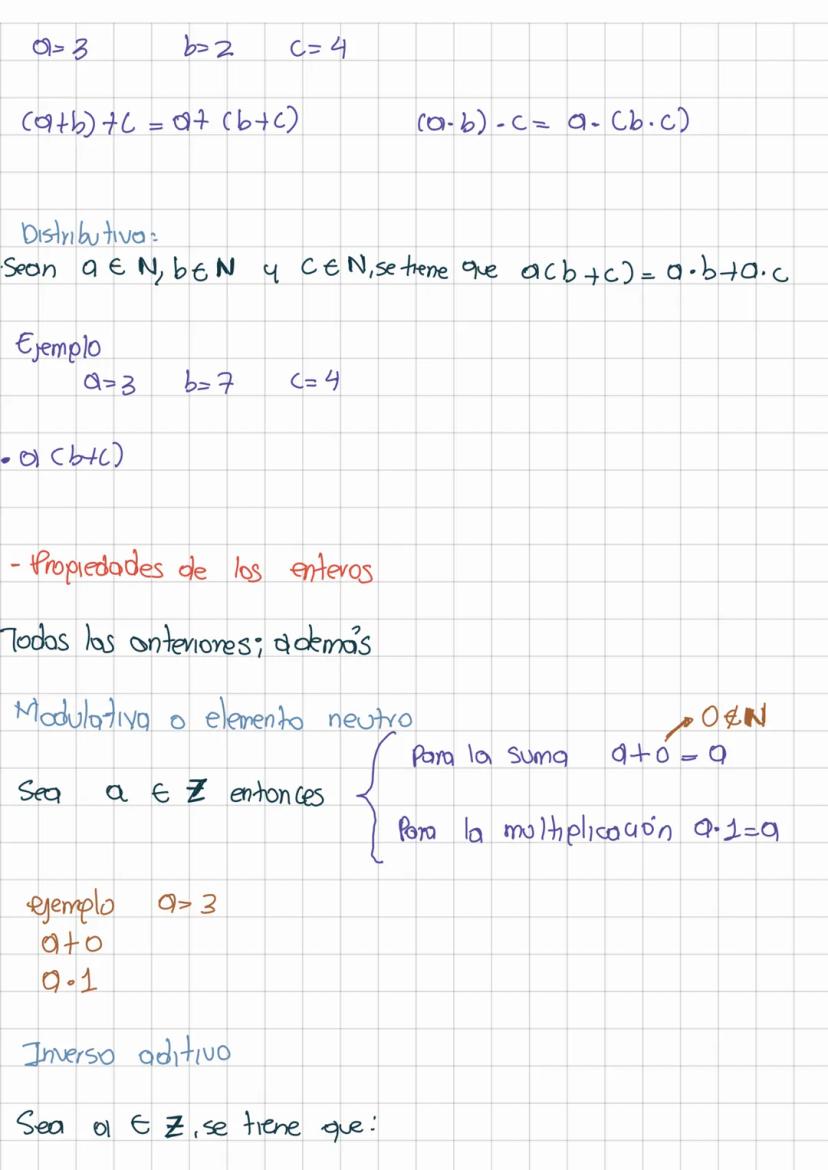 a=3 b=2 c=4
(a+b)+c = a+ (b+c) (a·b)·c = a·(b·c)
Distributiva:
Sean a ∈ N, b ∈ N y c ∈ N, se tiene que a(b+c) = a·b+a·c
Ejemplo
a=3 b=7 c=4
• a(b+c)
- Propiedades de los enteros
Todas las anteriores; además
Modulativa o elemento neutro
0 ∉ N
Para la suma a+0 = a
Sea a ∈ Z entonces
Para la multiplicación a·1=a
ejemplo a=3
a+0
a·1
Inverso aditivo
Sea a ∈ Z, se tiene que: